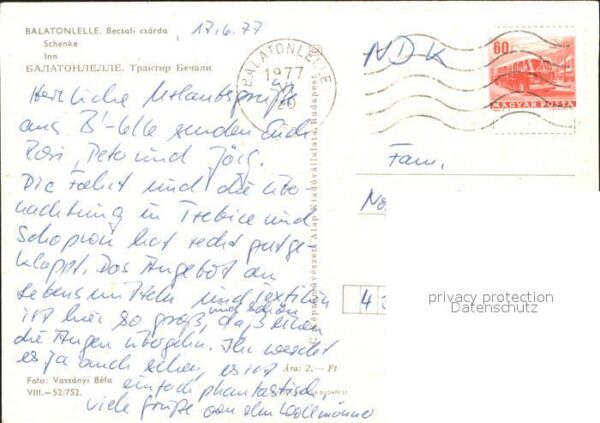 BALATONLELLE. Becsali csárda
Schenke
Inn
БАЛАТОНЛЕЛЛЕ. Трактир Бечали
17.6.77
BALATONLELLE
1977
20
NDK
60f
MAGYAR POSTA
Herzliche Urlaubsgrüße
aus B'lelle senden Euch
Rosi, Peto und Jörg.
Die Fahrt und die Übe-
nachtung in Trebice und
Schopron hat recht gut ge-
klappt. Das Angebot an
Lebensmitteln und Textilien
und schön
ist hier so groß, das einen
die Augen übergehn. Ihr werdet
es ja auch sehen, es ist
einfach phantastisch,
viele Grüße von den
Fam.
No
4
privacy protection
Datenschutz
Képzőművészeti Alap Kiadóvállalata, Budapest
Ára: 2,— Ft
Foto: Vassányi Béla
VIII.—52/752.
BUDAPEST